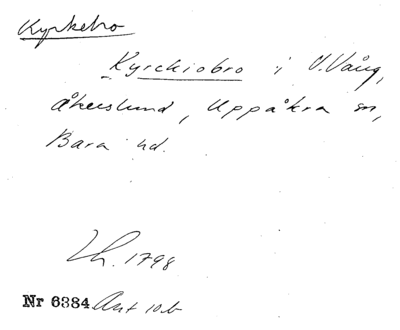 Kyrkebro
Kyrckiobro i V. Vång,
Åkerslund, Uppåkra sn,
Bara hd.
Lh. 1798
Nr 6384 Akt 10b